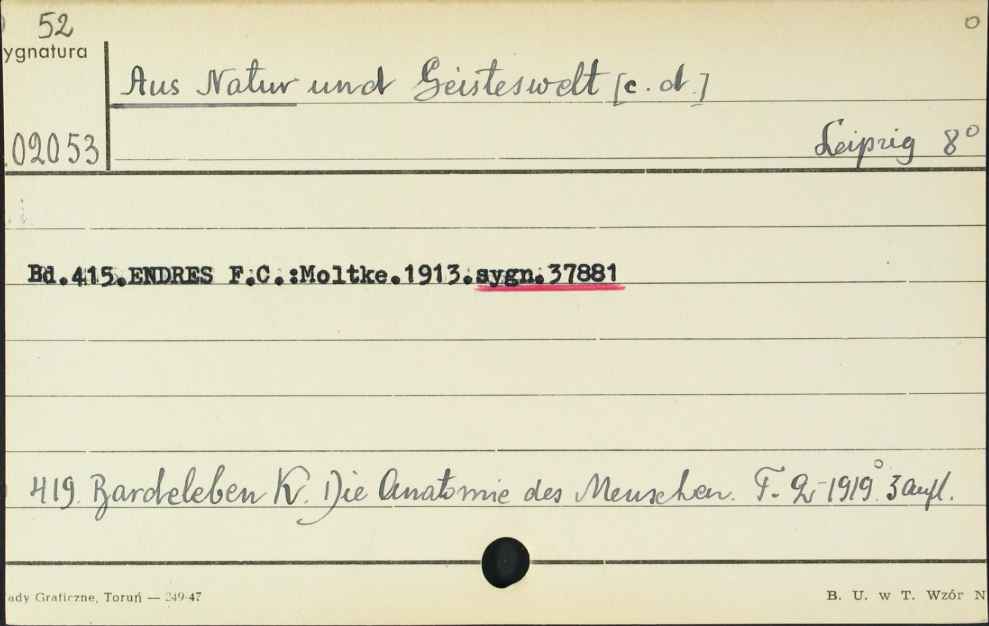 52
ygnatura
Aus Natur und Geisteswelt [c. d.]
02053
Leipzig 8°
Bd.415.ENDRES F.C.:Moltke.1913.sygn.37881
419. Bardeleben K. Die Anatomie des Menschen. T. 2 1919. 3 aufl.
ady Graficzne, Toruń — 249-47
B. U. w T. Wzór N